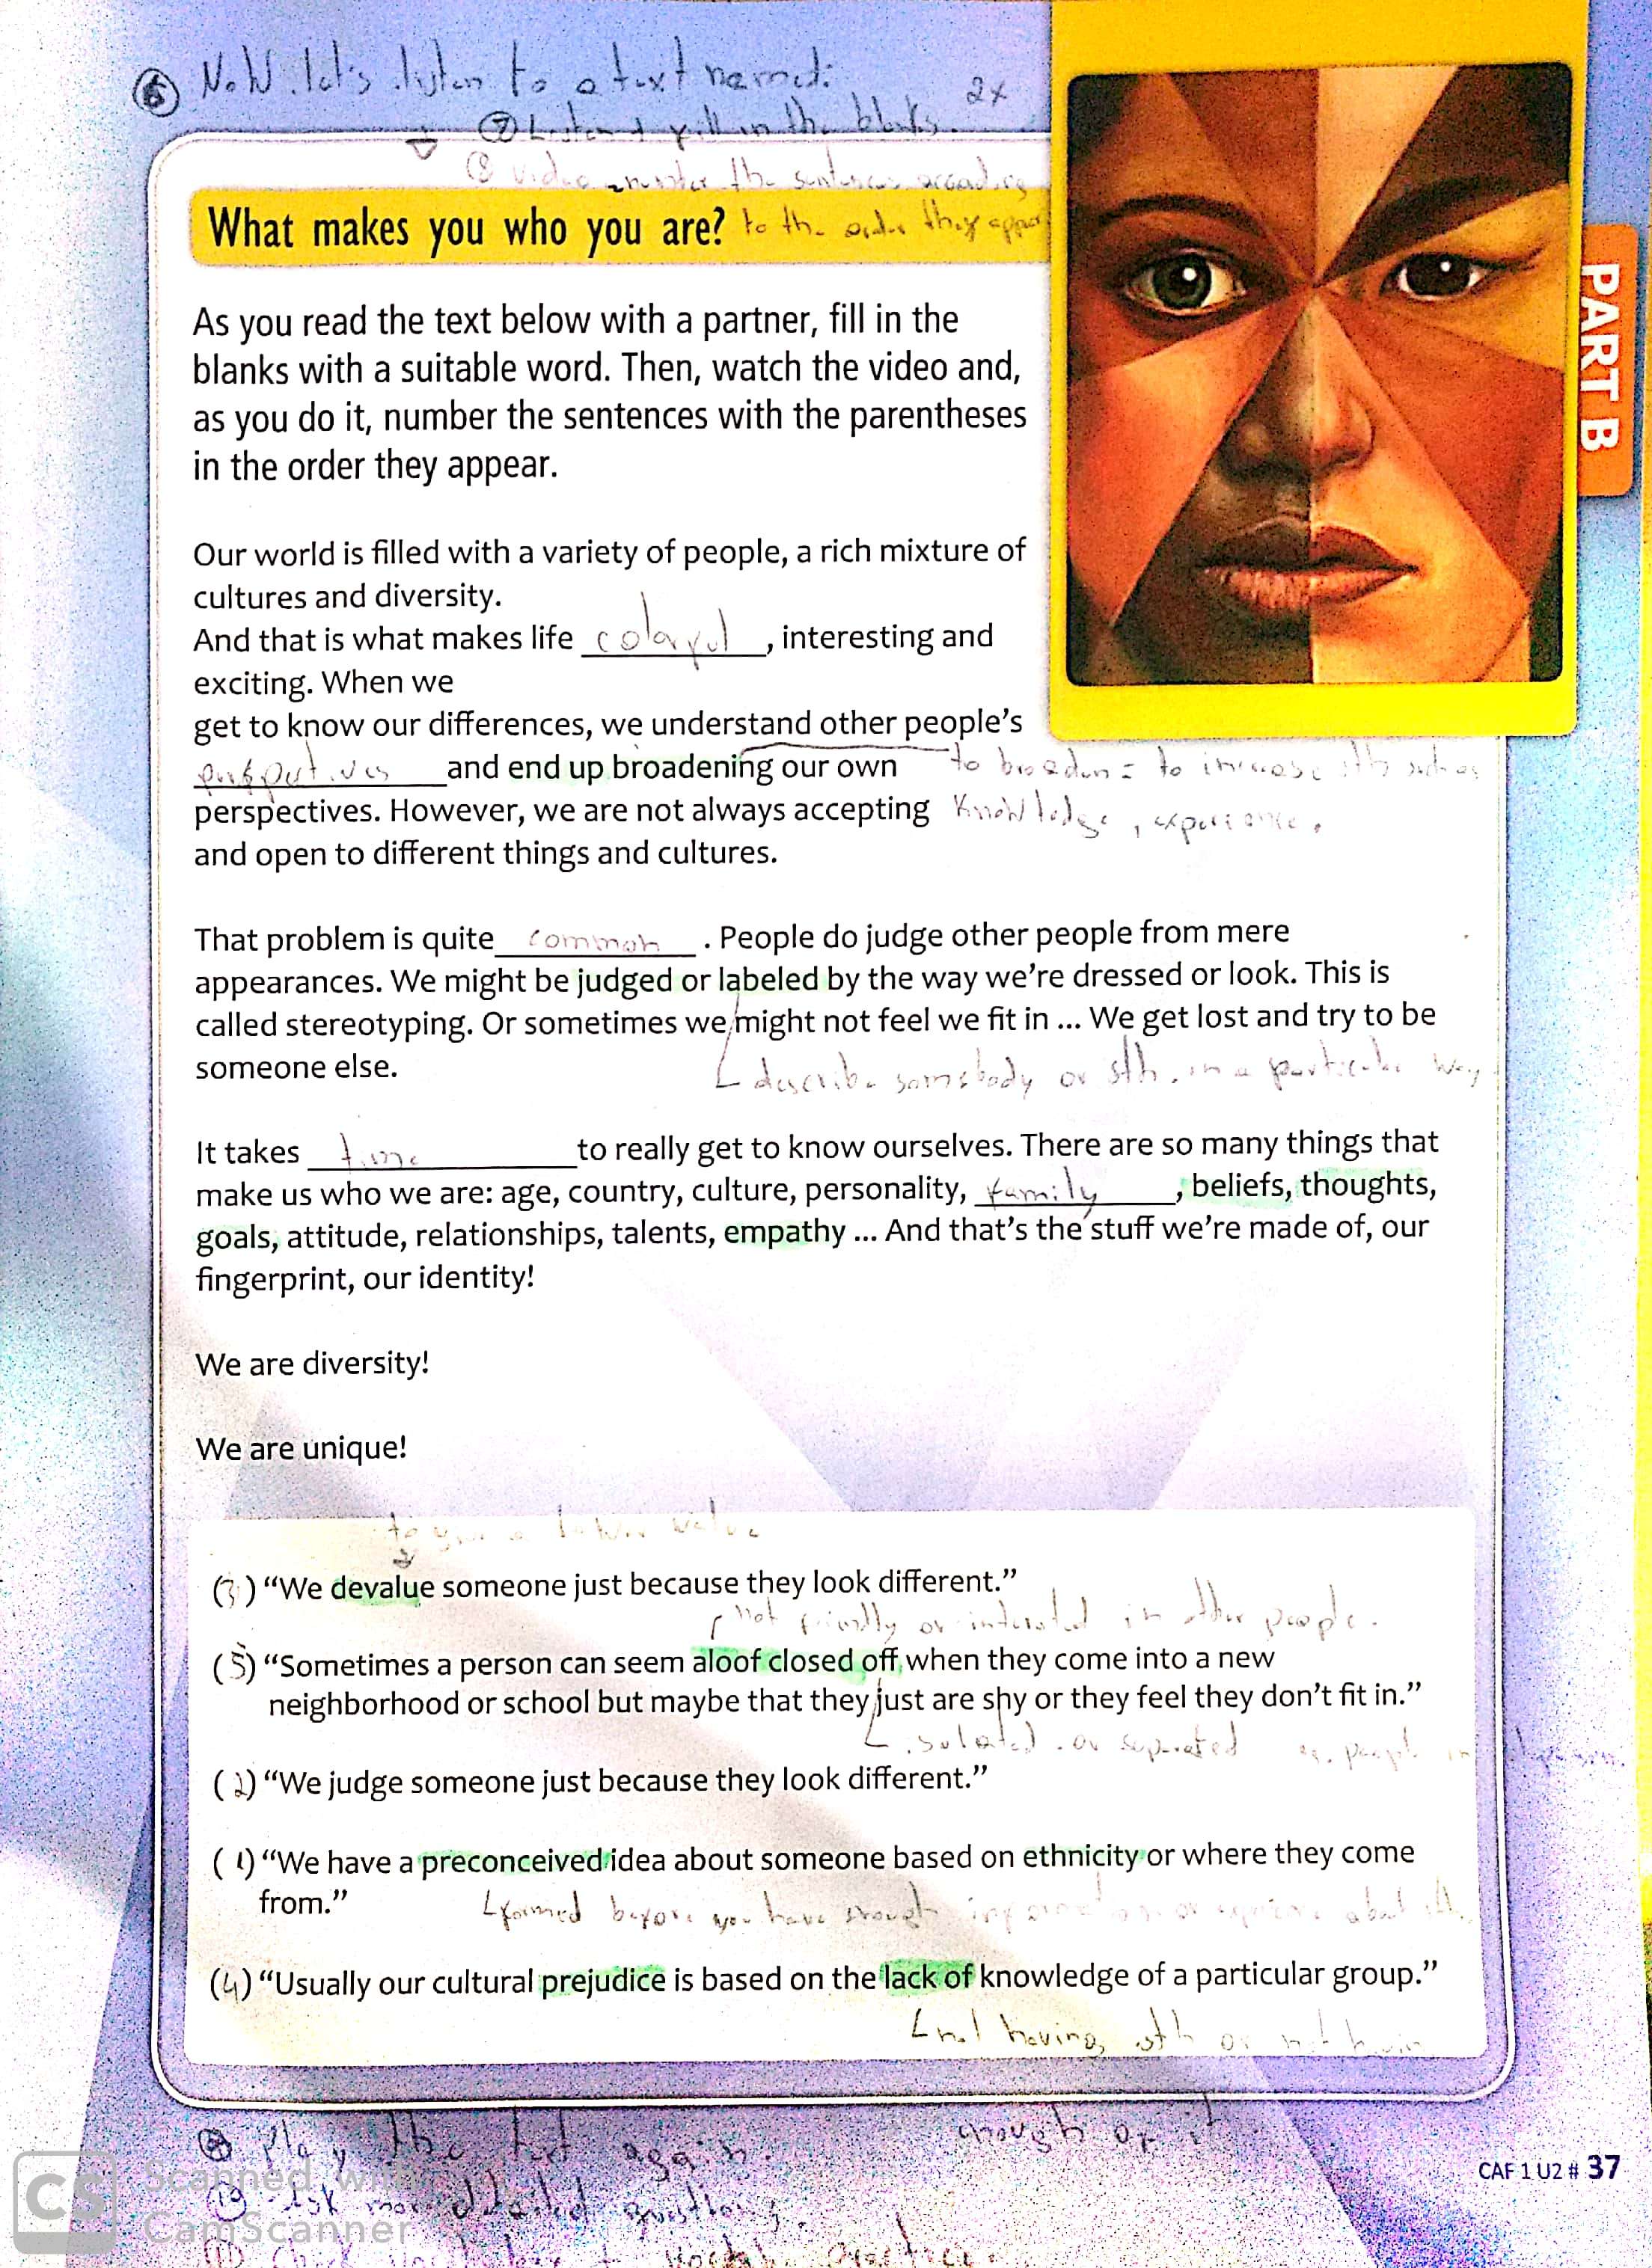 ⑥ Now let's listen to a text named: 2x
⑦ Listen & fill in the blanks.
⑧ Video number the sentences according
What makes you who you are? to the order they appear
As you read the text below with a partner, fill in the
blanks with a suitable word. Then, watch the video and,
as you do it, number the sentences with the parentheses
in the order they appear.
PART B
Our world is filled with a variety of people, a rich mixture of
cultures and diversity.
And that is what makes life colorful, interesting and
exciting. When we
get to know our differences, we understand other people's
perspectives and end up broadening our own
to broaden = to increase sth such as
perspectives. However, we are not always accepting
knowledge, experience.
and open to different things and cultures.
That problem is quite common. People do judge other people from mere
appearances. We might be judged or labeled by the way we're dressed or look. This is
called stereotyping. Or sometimes we might not feel we fit in ... We get lost and try to be
someone else.
describe somebody or sth. in a particular way
It takes time to really get to know ourselves. There are so many things that
make us who we are: age, country, culture, personality, family, beliefs, thoughts,
goals, attitude, relationships, talents, empathy ... And that's the stuff we're made of, our
fingerprint, our identity!
We are diversity!
We are unique!
to give a lower value
(3) "We devalue someone just because they look different."
not friendly or interested in other people.
(5) "Sometimes a person can seem aloof closed off when they come into a new
neighborhood or school but maybe that they just are shy or they feel they don't fit in."
isolated or separated eg. people in
(2) "We judge someone just because they look different."
(1) "We have a preconceived idea about someone based on ethnicity or where they come
from."
formed before you have enough information or experience about sth.
(4) "Usually our cultural prejudice is based on the lack of knowledge of a particular group."
not having sth or not having
enough of it
Play the text again.
⑩ Ask more detailed questions.
⑪ Check
CAF 1 U2 # 37
CS Scanned with
CamScanner